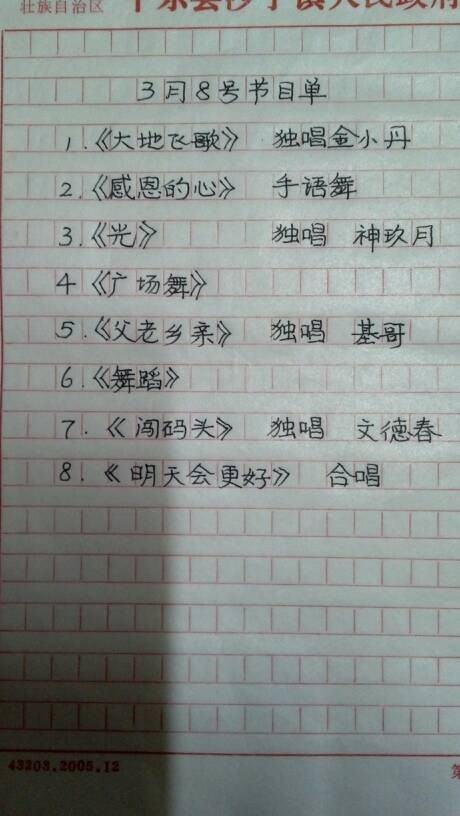 壮族自治区 平乐县沙子镇人民政府
3月8号节目单
1.《大地飞歌》 独唱金小丹
2.《感恩的心》 手语舞
3.《光》 独唱 神玖月
4《广场舞》
5.《父老乡亲》 独唱 基哥
6.《舞蹈》
7.《闯码头》 独唱 文德春
8.《明天会更好》 合唱
43203.2005.12
第